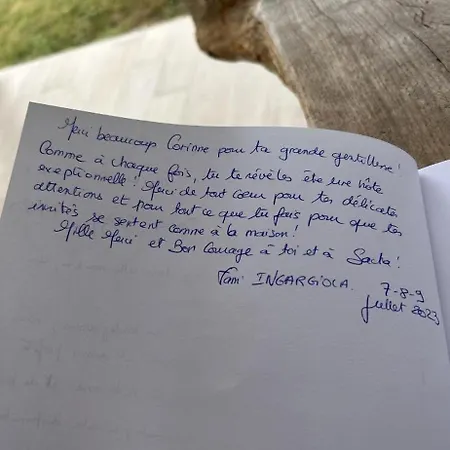 Merci beaucoup Corinne pour ta grande gentillesse!
Comme à chaque fois, tu te révèles être une hôte
exceptionnelle! Merci de tout coeur pour tes délicates
attentions et pour tout ce que tu fais pour que tes
invités se sentent comme à la maison!
Mille Merci et Bon Courage à toi et à Sacha!
Fam INGARGIOLA. 7-8-9
Juillet 2023